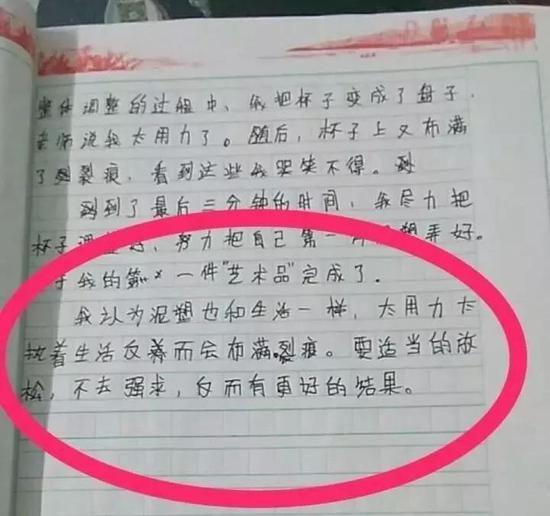 整体调整的过程中，我把杯子变成了盘子，
老师说我太用力了。随后，杯子上又布满
了裂痕，看到这些我哭笑不得。
到了最后三分钟的时间，我尽力把
杯子调整好，努力把自己第一 塑弄好。
于我的第一件"艺术品"完成了。
我认为泥塑也和生活一样，太用力太
执着生活反着而会布满裂痕。要适当的放
松，不去强求，反而有更好的结果。